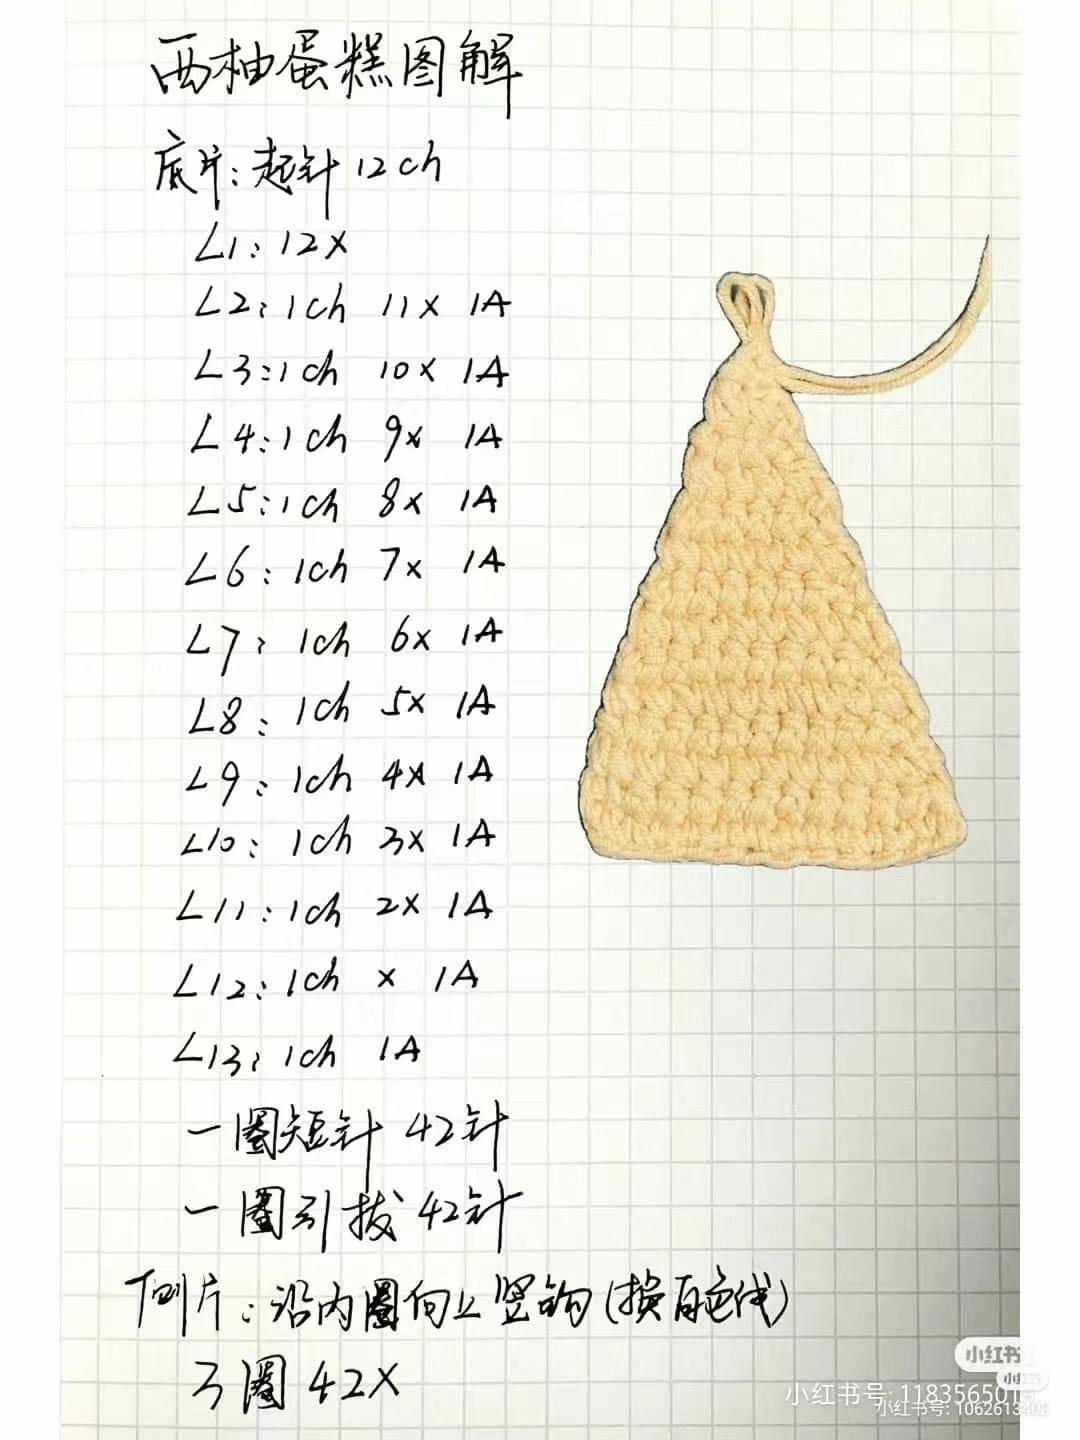 西柚蛋糕图解
底片：起针 12ch
L1：12X
L2：1ch 11X 1A
L3：1ch 10X 1A
L4：1ch 9X 1A
L5：1ch 8X 1A
L6：1ch 7X 1A
L7：1ch 6X 1A
L8：1ch 5X 1A
L9：1ch 4X 1A
L10：1ch 3X 1A
L11：1ch 2X 1A
L12：1ch X 1A
L13：1ch 1A
一圈短针 42针
一圈引拔 42针
侧片：沿内圈向上竖钩（换白色线）
3圈 42X
小红书
小红书
小红书号: 1183565017
小红书号: 1062613403